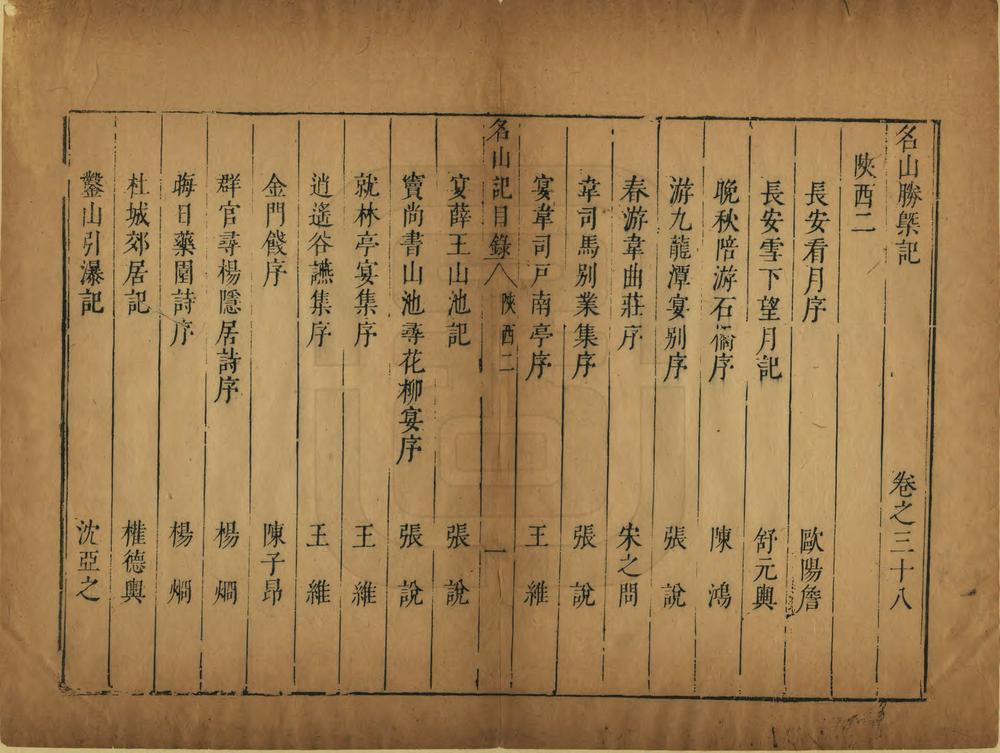 名山勝槩記 卷之三十八
陝西二
長安看月序 歐陽詹
長安雪下望月記 舒元輿
晚秋陪游石䃮序 陳鴻
游九龍潭宴別序 張說
春游韋曲莊序 宋之問
韋司馬別業集序 張說
宴韋司戸南亭序 王維
名山記目錄 陝西二 一
宴薛王山池記 張說
竇尚書山池尋花柳宴序 張說
就林亭宴集序 王維
逍遙谷讌集序 王維
金門餞序 陳子昂
群官尋楊隱居詩序 楊烱
晦日藥園詩序 楊烱
杜城郊居記 權德輿
鑿山引瀑記 沈亞之